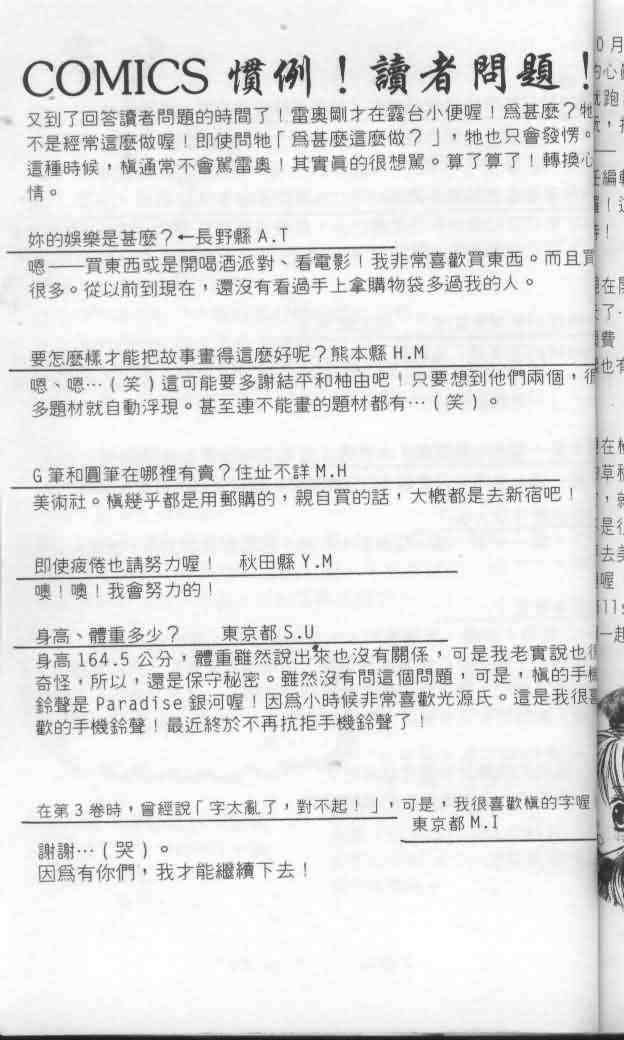 COMICS 慣例！讀者問題！
又到了回答讀者問題的時間了！雷奧剛才在露台小便喔！為甚麼？牠
不是經常這麼做喔！即使問牠「為甚麼這麼做？」，牠也只會發愣。
這種時候，槇通常不會罵雷奧！其實真的很想罵。算了算了！轉換心
情。
妳的娛樂是甚麼？←長野縣 A.T
嗯——買東西或是開喝酒派對、看電影！我非常喜歡買東西。而且買
很多。從以前到現在，還沒有看過手上拿購物袋多過我的人。
要怎麼樣才能把故事畫得這麼好呢？熊本縣 H.M
嗯、嗯…（笑）這可能要多謝結平和柚由吧！只要想到他們兩個，很
多題材就自動浮現。甚至連不能畫的題材都有…（笑）。
G 筆和圓筆在哪裡有賣？住址不詳 M.H
美術社。槇幾乎都是用郵購的，親自買的話，大概都是去新宿吧！
即使疲倦也請努力喔！ 秋田縣 Y.M
噢！噢！我會努力的！
身高、體重多少？ 東京都 S.U
身高 164.5 公分，體重雖然說出來也沒有關係，可是我老實說也很
奇怪，所以，還是保守秘密。雖然沒有問這個問題，可是，槇的手機
鈴聲是 Paradise 銀河喔！因為小時候非常喜歡光源氏。這是我很喜
歡的手機鈴聲！最近終於不再抗拒手機鈴聲了！
在第 3 卷時，曾經說「字太亂了，對不起！」，可是，我很喜歡槇的字喔
東京都 M.I
謝謝…（哭）。
因為有你們，我才能繼續下去！